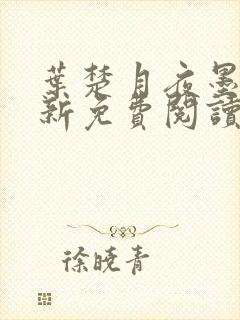 葉楚月夜墨
新免費閱讀
徐曉青